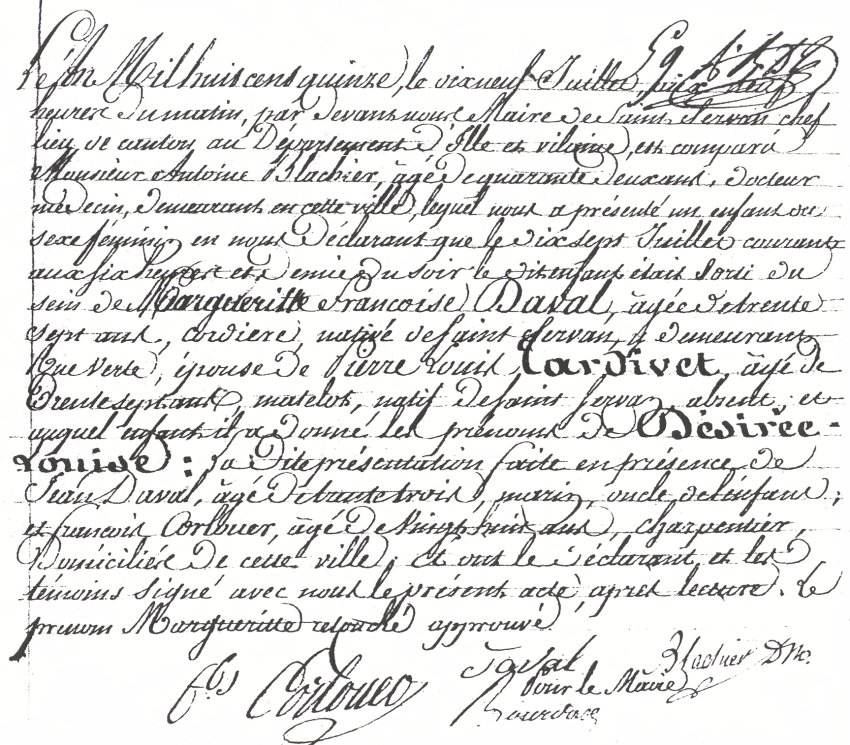 L'an Mil huit cens quinze, le dix neuf Juillet, aux neuf
heures du matin, par devant nous Maire de Saint Servan chef
lieu de canton au Département d'Ille et vilaine, est comparu
Monsieur Antoine Blachier, âgé de quarante deux ans, docteur
médecin, demeurant en cette ville, lequel nous a présenté un enfant du
sexe féminin en nous déclarant que le dix sept Juillet courant
aux six heures et demie du soir le dit enfant était sorti du
sein de Margueritte Francoise Daval, âgée de trente
sept ans, cordière, native de saint Servan, y demeurant
Rue Verte, épouse de Pierre Louis Tardivet, âgé de
Trente sept ans, matelot, natif de saint Servan, absent, et
auquel enfant il a donné les prénoms de Désirée-
Louise: La dite présentation faite en présence de
Jean Daval, âgé de trente trois, marin, oncle de l'enfant;
et francois Corlouer, âgé de vingt huit ans, charpentier,
Domiciliés de cette ville; et ont le déclarant et les
témoins signé avec nous le présent acte, après lecture. Le
prenom Margueritte retouché approuvé
Blachier D.M.
Daval
fçois Corlouer
Pour le Maire